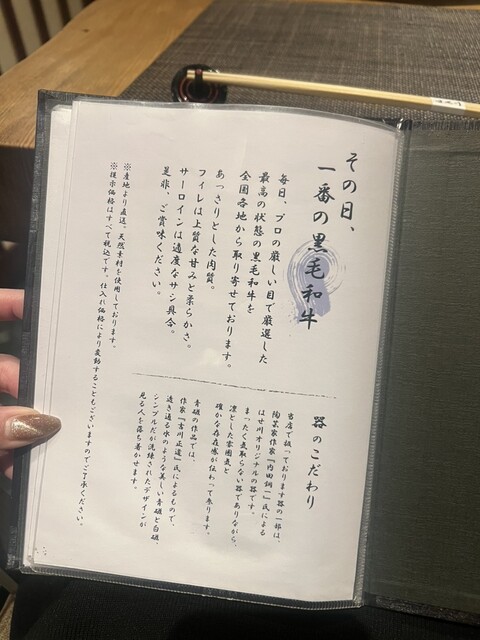 その日、
一番の黒毛和牛
毎日、プロの厳しい目で厳選した
最高の状態の黒毛和牛を
全国各地から取り寄せております。
あっさりとした肉質。
フィレは上質な甘みと柔らかさ。
サーロインは適度なサシ具合。
是非、ご賞味ください。
※産地より直送。天然素材を使用しております。
※提示価格はすべて税込です。仕入れ価格により変動することもございますのでご了承ください。
器のこだわり
当店で扱っております器の一部は、
陶芸家作家『内田鋼一』氏による
はせ川オリジナルの器です。
まったく気取らない器でありながら、
凛とした雰囲気と
確かな存在感が伝わって参ります。
青磁の作品では、
作家『吉川正道』氏によるもので、
透き通る水のような美しい青磁と白磁、
シンプルだが洗練されたデザインが
見る人を落ち着かせます。